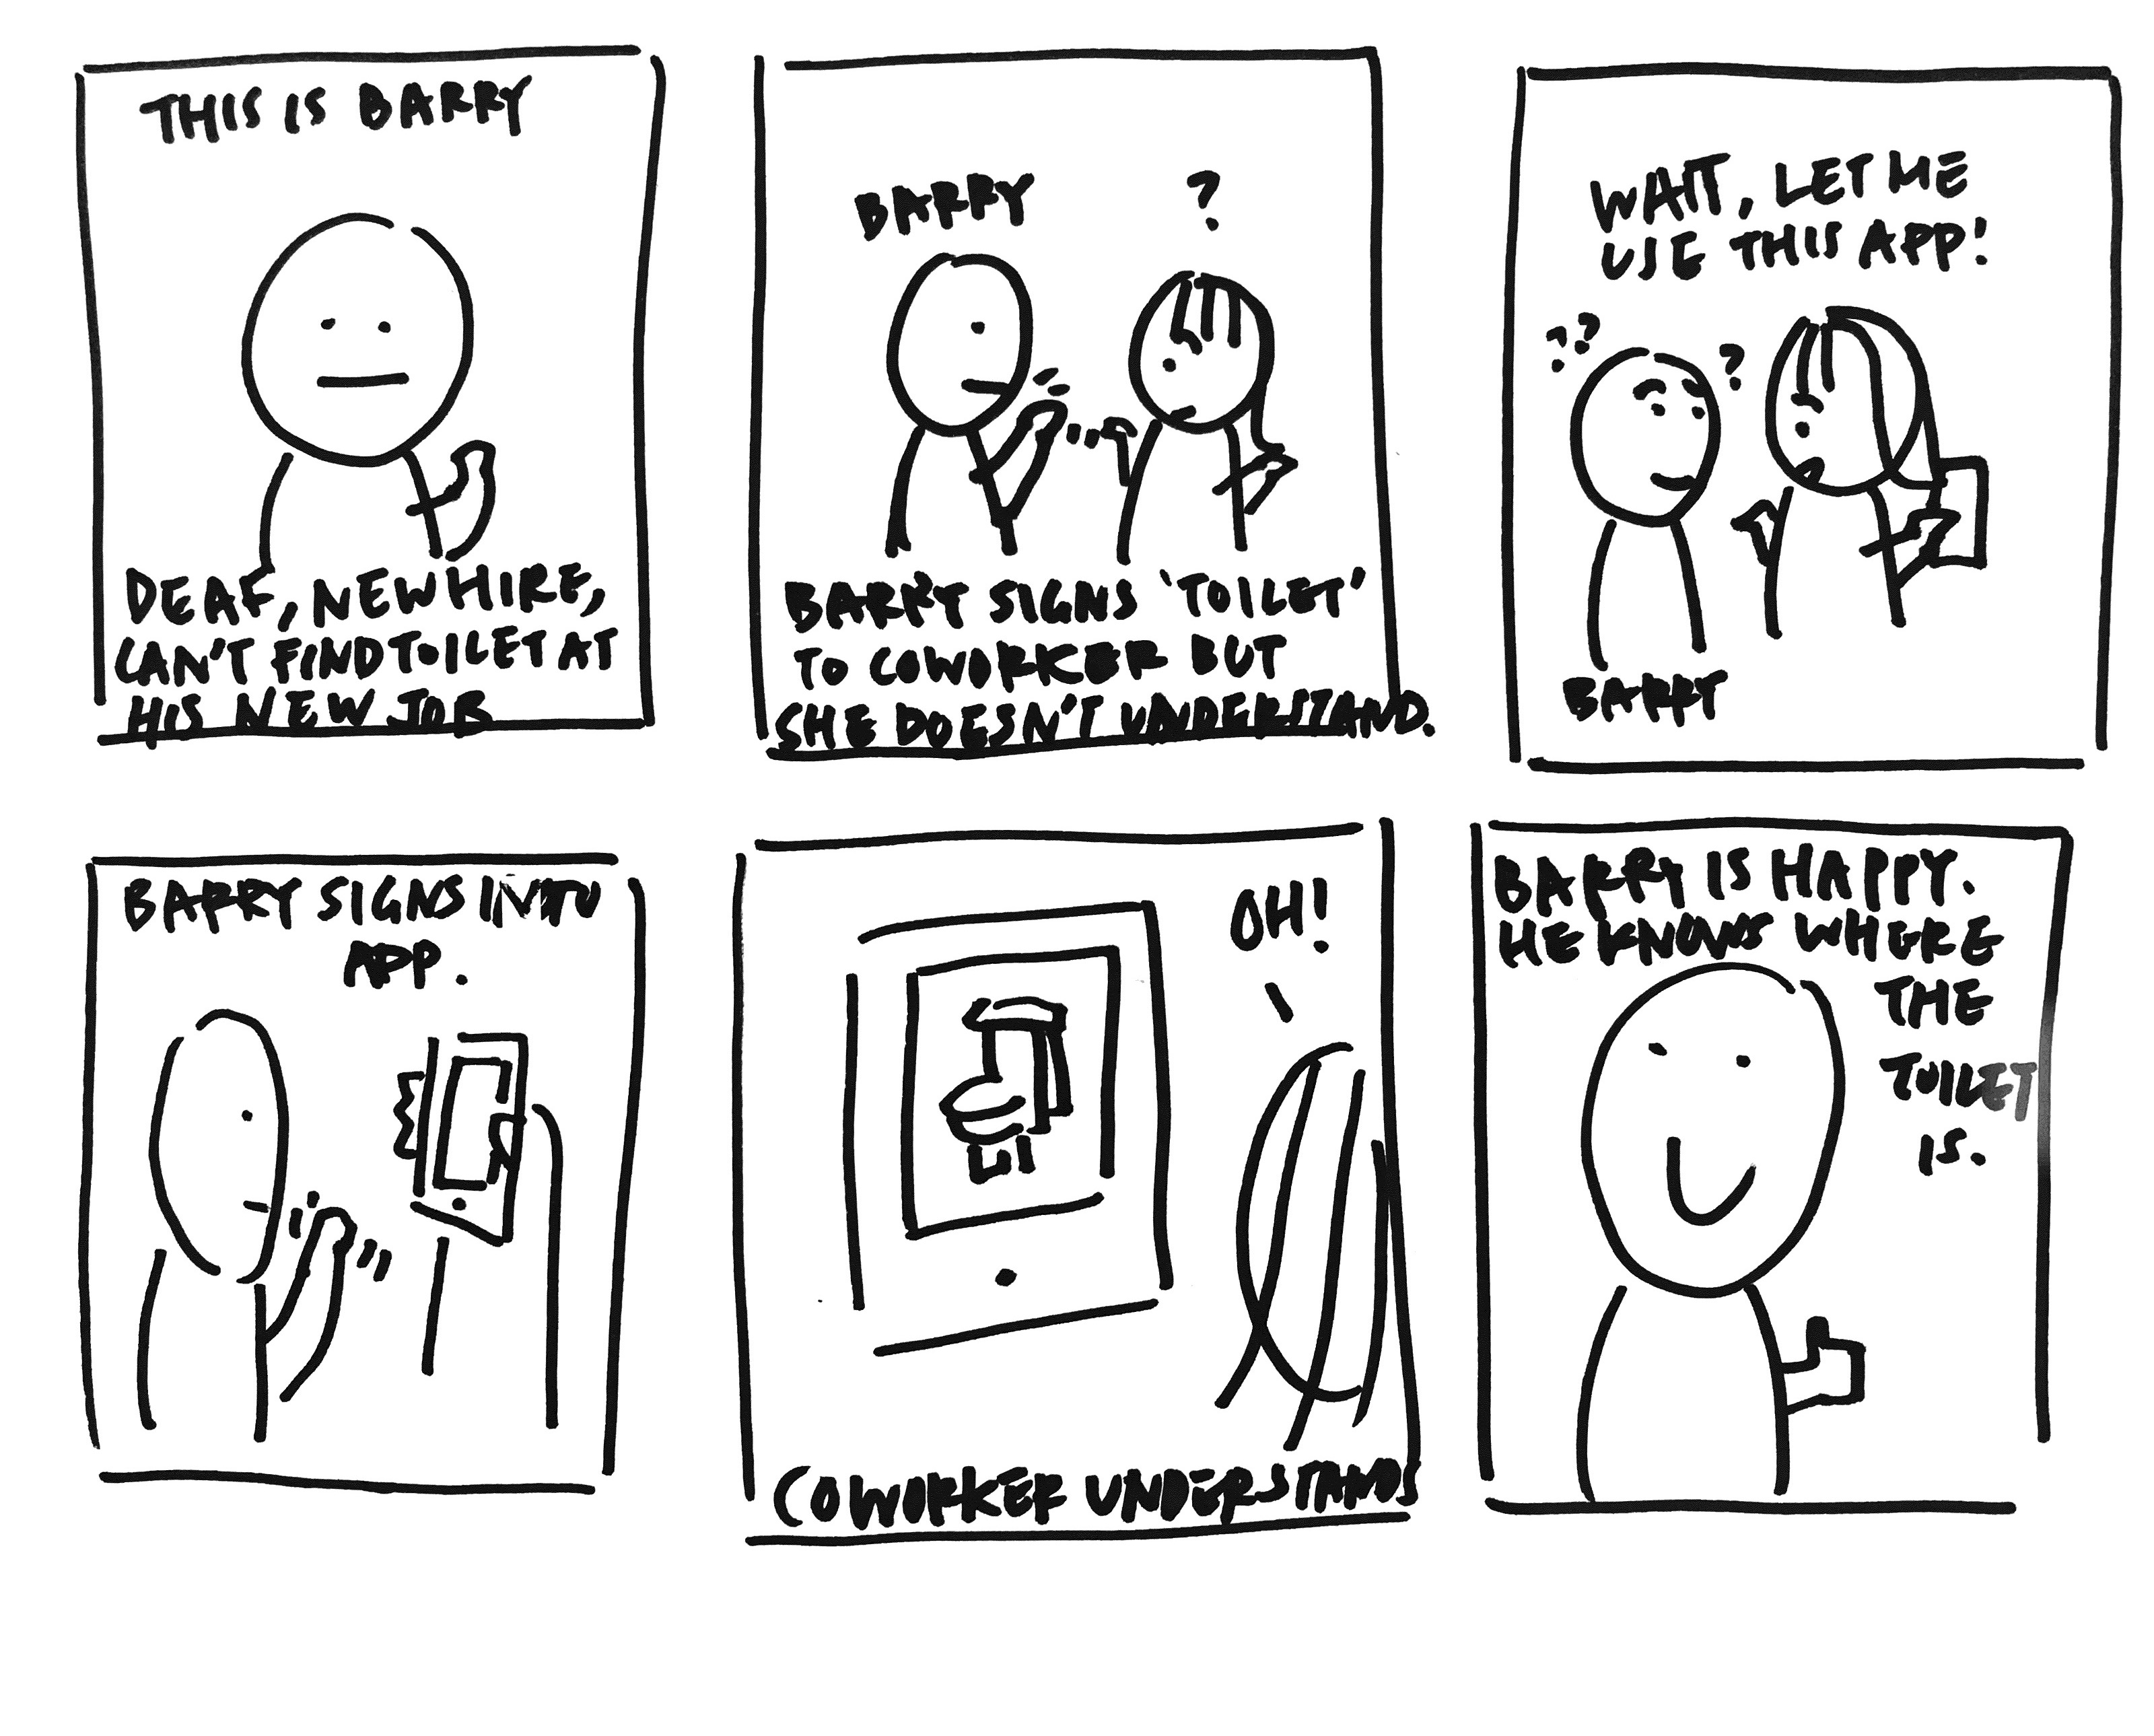 THIS IS BARRY
DEAF, NEW HIRE,
CAN'T FIND TOILET AT
HIS NEW JOB
BARRY
?
BARRY SIGNS 'TOILET'
TO COWORKER BUT
SHE DOESN'T UNDERSTAND.
WAIT, LET ME
USE THIS APP!
? ?
?
BARRY
BARRY SIGNS INTO
APP.
OH!
COWORKER UNDERSTANDS
BARRY IS HAPPY.
HE KNOWS WHERE
THE
TOILET
IS.